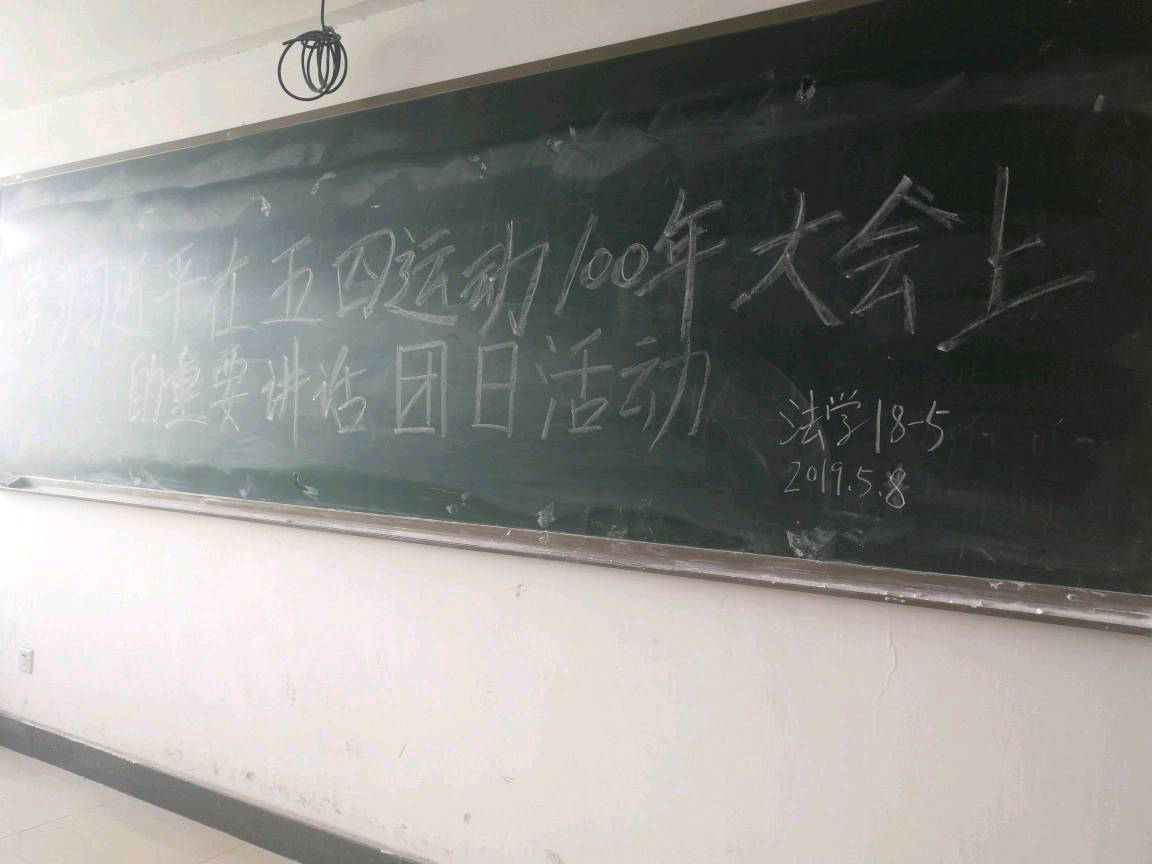 学习近平在五四运动100年大会上
的重要讲话团日活动
法学18-5
2019.5.8